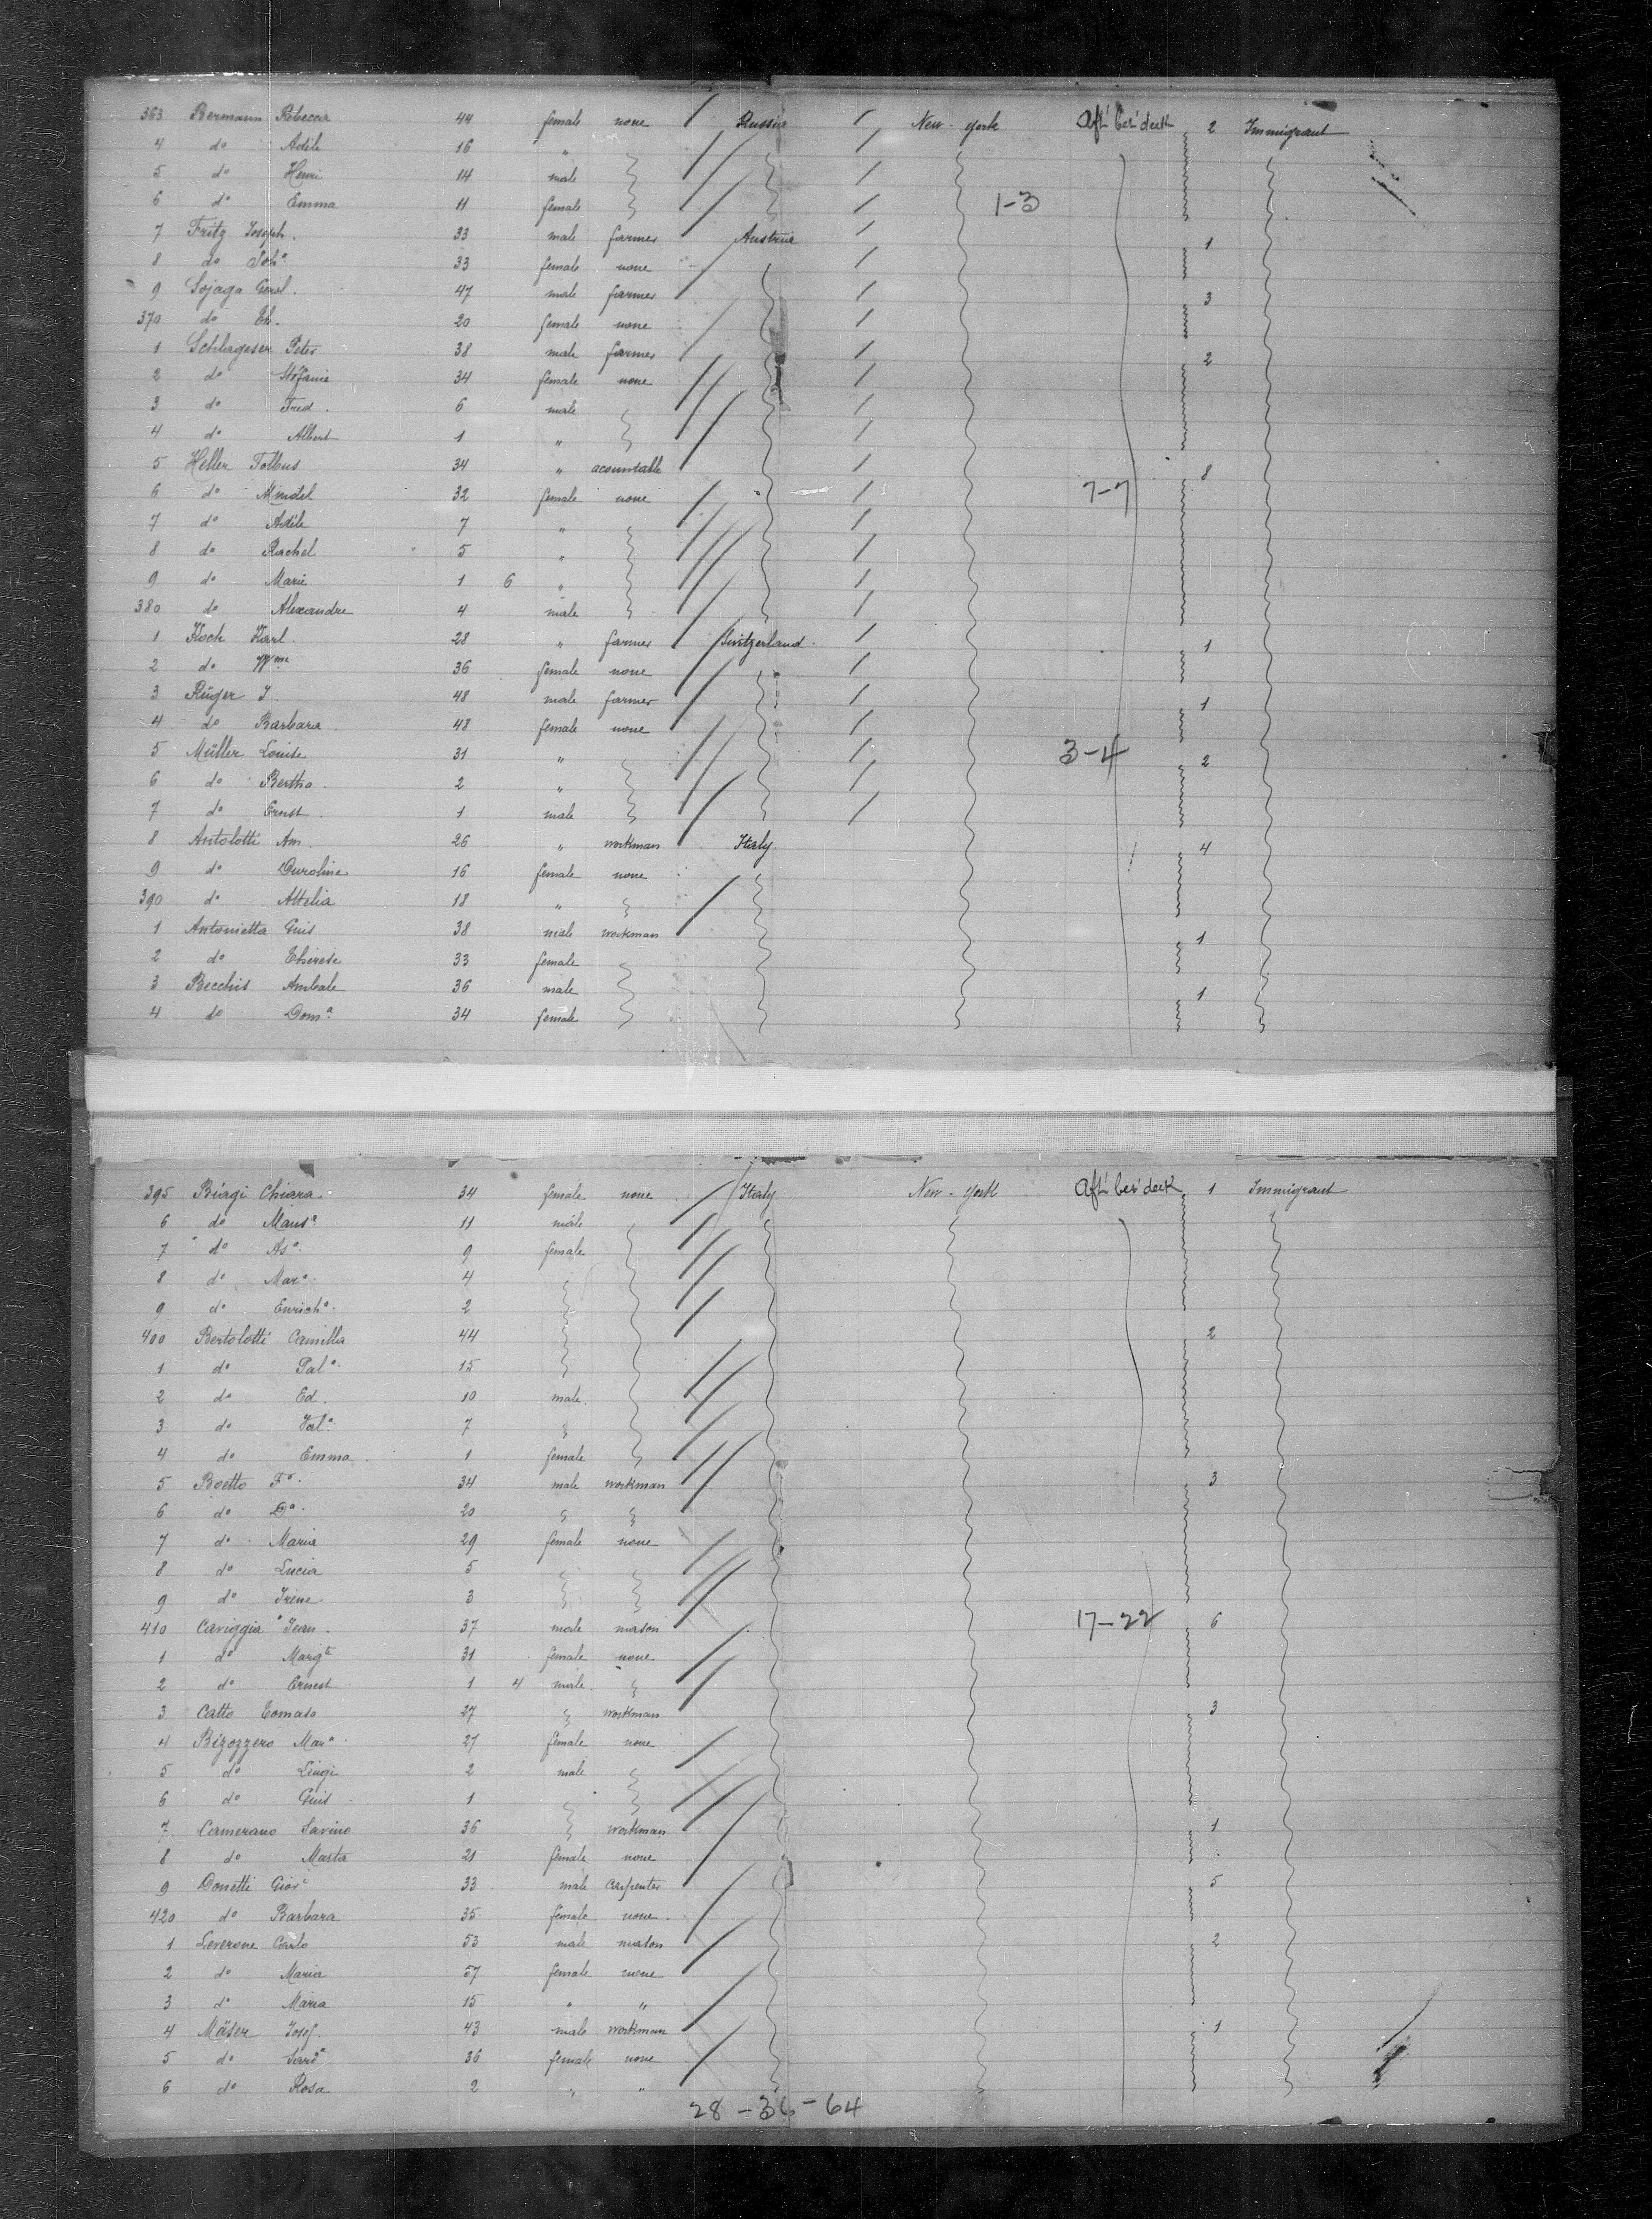 363 Bermann Rebecca 44 female none Russia New-York Aft' bet' deck 2 Immigrant
4 do Adèle 16 "
5 do Henri 14 male
6 do Emma 11 female 1-3
7 Fritz Joseph. 33 male farmer Austria 1
8 do Joh.a 33 female none
9 Sojaga 47 male farmer 3
370 do 20 female none
1 Schlageser Peter 38 male farmer 2
2 do Stefanie 34 female none
3 do Fred. 6 male
4 do Albert 1 "
5 Heller Tolbus 34 " acountable 8
6 do Mindel 32 female none 7-7
7 do Adèle 7 "
8 do Rachel 5 "
9 do Marie 1 6 "
380 do Alexandre 4 male
1 Koch Karl. 28 " farmer Switzerland. 1
2 do Wme 36 female none
3 Rüger J 48 male farmer 1
4 do Barbara. 48 female none
5 Müller Louise 31 " 3-4 2
6 do Bertha. 2 "
7 do Ernst. 1 male
8 Antolotti Am. 26 " workman Italy 4
9 do 16 female none
390 do Attelia 18 "
1 Antonietta Guis 38 male workman 1
2 do Therese 33 female
3 Becchis Ambale 36 male 1
4 do Dom.a 34 female
395 Biagi Chiara. 34 female none Italy New-York Aft' bet' deck 1 Immigrant
6 do Mans.a 11 male
7 do As.a 9 female
8 do Mar.a 4
9 do Enrich.a 2
400 Bertolotti Camilla 44 2
1 do Pal.a 15
2 do Ed. 10 male
3 do Val.a 7
4 do Emma. 1 female
5 Boetto F.o 34 male workman 3
6 do D.o 20
7 do Maria 29 female none
8 do Lucia 5
9 do Irene 3
410 Caviggia Jean. 37 male mason 17-22 6
1 do Margte 31 female none
2 do Ernest. 1 4 male
3 Catto Tomaso 27 workman 3
4 Bizozzero Mar.a 27 female none
5 do Liugi 2 male
6 do Guis 1
7 Camerano Savino 36 workman 1
8 do Marta 21 female none
9 Donetti Giov.i 33 male carpenter 5
420 do Barbara 35 female none
1 Leverone Carlo 53 male mason 2
2 do Maria 57 female none
3 do Maria 15 " "
4 Mäser Josef. 43 male workman 1
5 do 36 female none
6 do Rosa 2 " "
28-36-64